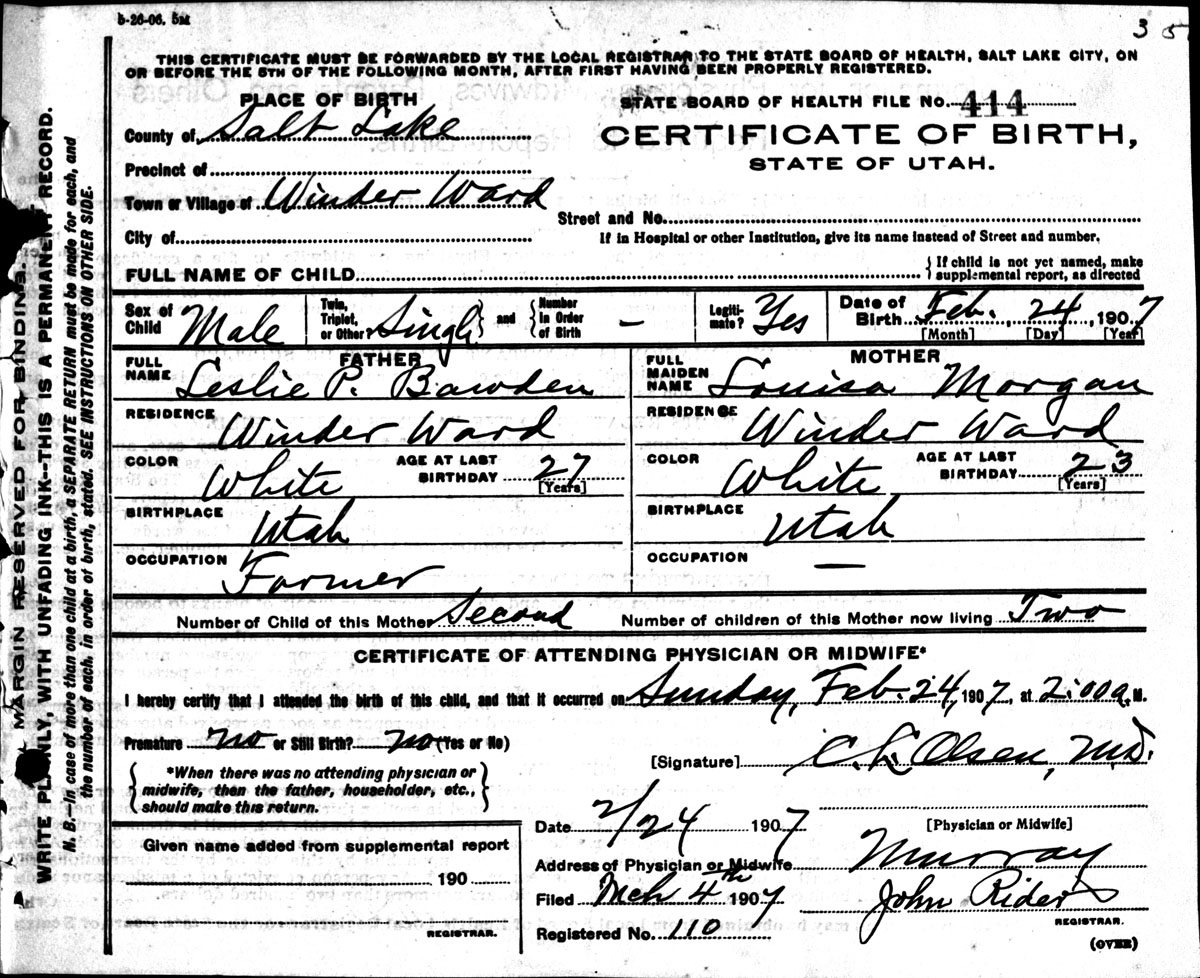 5-26-06. 5M
3 5
THIS CERTIFICATE MUST BE FORWARDED BY THE LOCAL REGISTRAR TO THE STATE BOARD OF HEALTH, SALT LAKE CITY, ON
OR BEFORE THE 5TH OF THE FOLLOWING MONTH, AFTER FIRST HAVING BEEN PROPERLY REGISTERED.
PLACE OF BIRTH
STATE BOARD OF HEALTH FILE NO. 414
County of Salt Lake
CERTIFICATE OF BIRTH,
STATE OF UTAH.
Precinct of
Town or Village of Winder Ward
Street and No.
City of
If in Hospital or other Institution, give its name instead of Street and number.
FULL NAME OF CHILD
If child is not yet named, make
supplemental report, as directed
Sex of Child Male
Twin, Triplet, or Other? Single and Number in Order of Birth –
Legiti-mate? Yes
Date of Birth Feb. 24, 1907
[Month] [Day] [Year]
FATHER
MOTHER
FULL NAME Leslie P. Bawden
FULL MAIDEN NAME Louisa Morgan
RESIDENCE Winder Ward
RESIDENCE Winder Ward
COLOR White AGE AT LAST BIRTHDAY 27 [Years]
COLOR White AGE AT LAST BIRTHDAY 23 [Years]
BIRTHPLACE Utah
BIRTHPLACE Utah
OCCUPATION Farmer
OCCUPATION —
Number of Child of this Mother Second Number of children of this Mother now living Two
CERTIFICATE OF ATTENDING PHYSICIAN OR MIDWIFE*
I hereby certify that I attended the birth of this child, and that it occurred on Sunday, Feb. 24, 1907, at 2:00 a. M.
Premature no or Still Birth? no (Yes or No)
[Signature] C. L. Olsen, M.D.
*When there was no attending physician or
midwife, then the father, householder, etc.,
should make this return.
Date 2/24 1907
[Physician or Midwife]
Given name added from supplemental report
190
REGISTRAR.
Address of Physician or Midwife Murray
Filed Mch 4th 1907 John Rider
REGISTRAR.
Registered No. 110
(OVER)
MARGIN RESERVED FOR BINDING.
WRITE PLAINLY, WITH UNFADING INK--THIS IS A PERMANENT RECORD.
N. B.—In case of more than one child at a birth, a SEPARATE RETURN must be made for each, and
the number of each, in order of birth, stated. SEE INSTRUCTIONS ON OTHER SIDE.